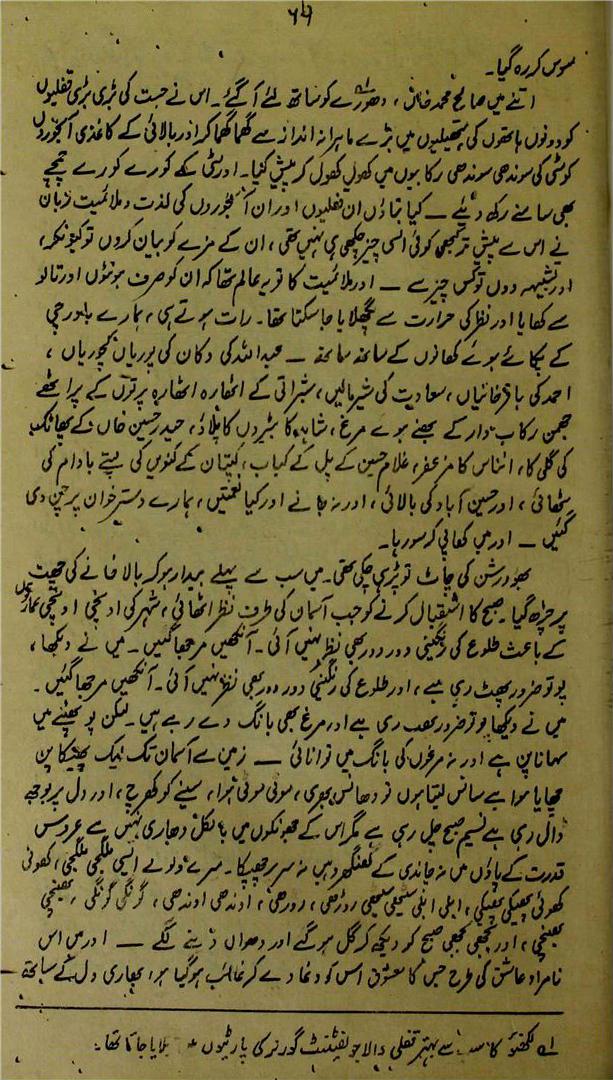 مسوس کر رہ گیا۔
اتنے میں صالح محمد خاں، دھورے کو ساتھ لئے آ گئے۔ اس نے جست کی بڑی بڑی قفلیوں
کو دونوں ہاتھوں کی ہتھیلیوں میں بڑے ماہرانہ انداز سے گھما گھما کر اور بالائی کے کاغذی آبخوروں
کو مٹی کی سوندھی سوندھی رکابیوں میں کھول کھول کر پیش کیا۔ اور مٹی کے کورے کورے چمچے
بھی سامنے رکھ دیئے — کیا بتاؤں ان قفلیوں اور ان آبخوروں کی لذت و ملائمیت زبان
نے اس سے پیش تر کبھی کوئی ایسی چیز چکھی ہی نہیں تھی، ان کے مزے کو بیان کروں تو کیونکر،
اور تشبیہہ دوں تو کس چیز سے — اور ملائمیت کا تو یہ عالم تھا کہ ان کو صرف ہونٹوں اور تالو
سے کھایا اور نظر کی حرارت سے پگھلایا جا سکتا تھا۔ رات ہوتے ہی، ہمارے باورچی
کے پکائے ہوئے کھانوں کے ساتھ ساتھ — عبداللہ کی دکان کی پوریاں کچوریاں،
احمد کی باقرخانیاں، سعادت کی شیرمالیں، شبراتی کے اٹھارہ اٹھارہ پرتوں کے پراٹھے
جھمن رکاب دار کے بھنے ہوئے مرغ، شاہد کا بٹیروں کا پلاؤ، حیدر حسین خاں کے پھاٹک
کی گلی کا، انناس کا مزعفر، غلام حسین کے پل کے کباب، کپتان کے کنویں کی پستے بادام کی
مٹھائی، اور حسین آباد کی بالائی، اور نہ جانے اور کیا نعمتیں، ہمارے دسترخوان پر چن دی
گئیں — اور میں کھا پی کر سو رہا۔
بھور درشن کی چاٹ تو پڑ ہی چکی تھی۔ میں سب سے پہلے بیدار ہو کر بالا خانے کی چھت
پر چڑھ گیا۔ صبح کا استقبال کرنے کو جب آسمان کی طرف نظر اٹھائی، شہر کی اونچی اونچی عمارتوں
کے باعث طلوع کی رنگینی دور دور بھی نظر نہیں آئی۔ آنکھیں مرجھا گئیں۔ میں نے دیکھا،
پو تو ضرور پھٹ رہی ہے، اور طلوع کی رنگینی دور دور بھی نظر نہیں آئی۔ آنکھیں مرجھا گئیں۔
میں نے دیکھا پو تو ضرور پھٹ رہی ہے اور مرغ بھی بانگ دے رہے ہیں۔ لیکن پو پھٹنے میں
سہانا پن ہے اور نہ مرغوں کی بانگ میں توانائی — زمین سے آسمان تک ایک پھیکا پن
چھایا ہوا ہے سانس لیتا ہوں تو دھانس بھری، موٹی موٹی ہوا، سینے کو کھرچ، اور دل پر بوجھ
ڈال رہی ہے نسیم صبح چل رہی ہے مگر اس کے جھونکوں میں بانکل دھاری نہیں ہے عروس
قدرت کے پاؤں میں نہ چاندی کے گھنگھرو ہیں نہ سر پر جھپکا۔ میرے ولولے ایسی ملگجی ملگجی، کھوئی
کھوئی پھیکی پھیکی، ابلی ابلی سیٹھی سیٹھی روڑھی، روڑھی، اوندھی اوندھی، گونگی گونگی، بھینچی
بھینچی، اور بجھی بجھی صبح کو دیکھ کر گل ہو گئے اور دھواں دینے لگے — اور میں اس
نامراد عاشق کی طرح جس کا معشوق اس کو دغا دے کر غائب ہو گیا ہو، بھاری دل کے ساتھ —
لکھنؤ کا سب سے بہتر قفلی والا جو لفٹیننٹ گورنر کی پارٹیوں میں بلایا جاتا تھا۔